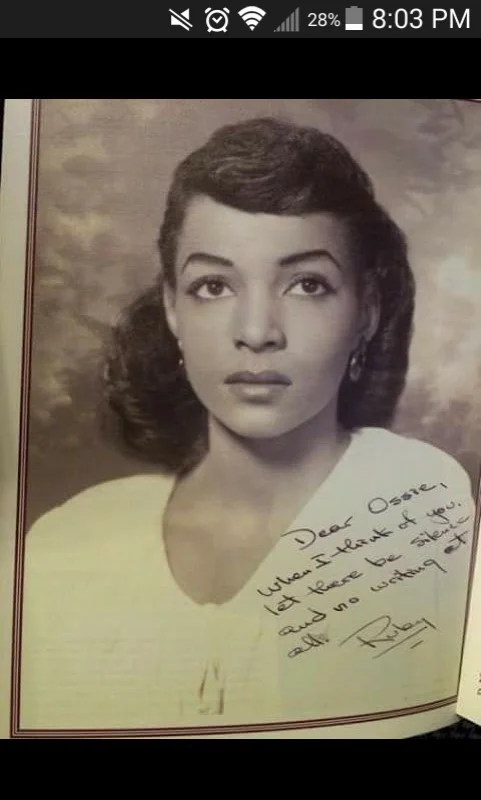 28% 8:03 PM
Dear Ossie,
When I think of you,
let there be silence
and no writing at
all.
Ruby